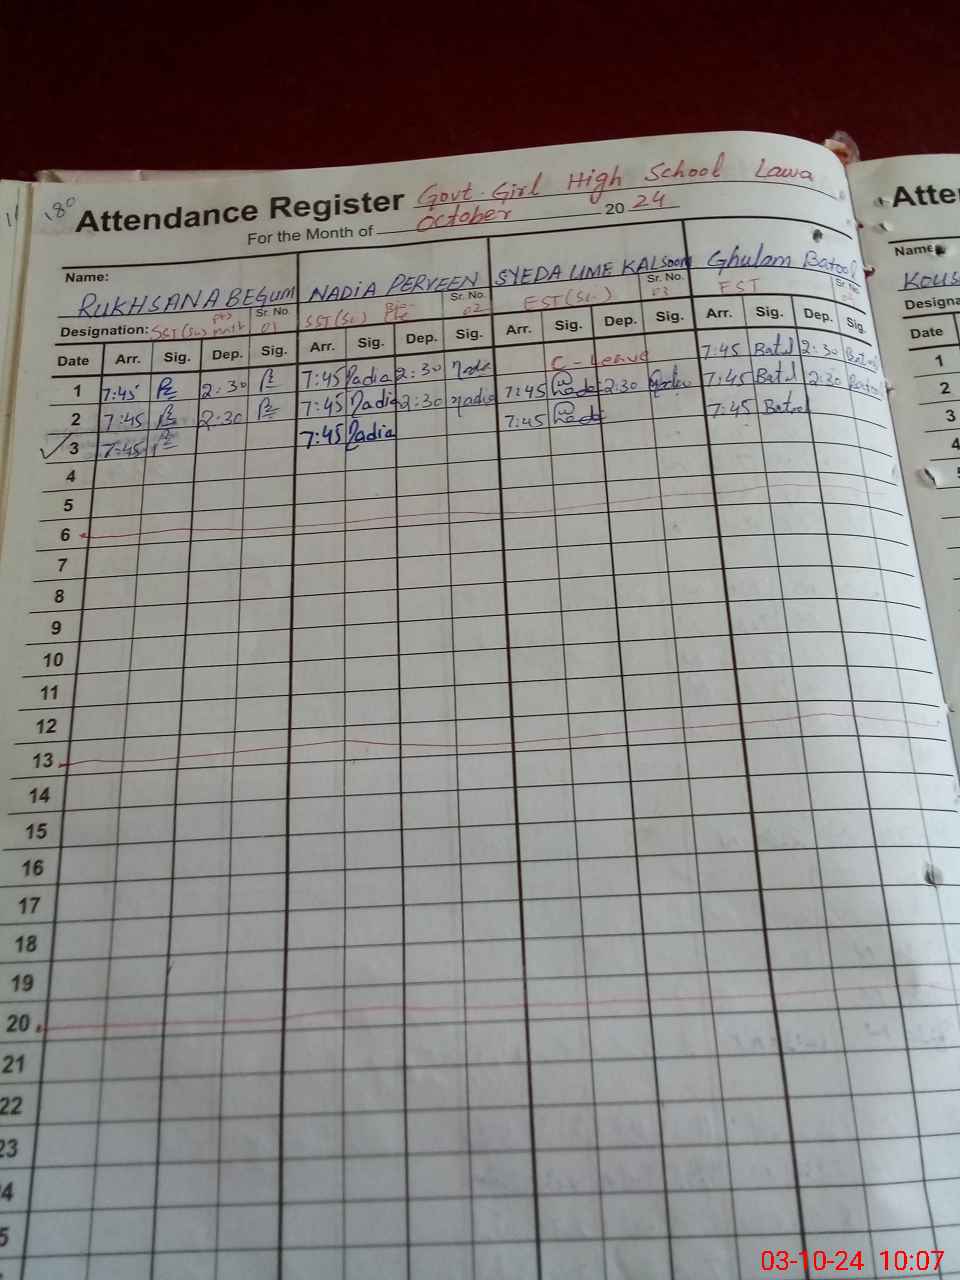 180
Attendance Register Govt. Girl High School Lawa
For the Month of October 20 24
Name: RUKHSANA BEGUM NADIA PERVEEN SYEDA UME KALSOOM Ghulam Batool
Designation: SST(Sc) Sr. No. 01 SST(Sc) Sr. No. 02 EST(Sc.) Sr. No. 03 EST Sr. No.
Date Arr. Sig. Dep. Sig. Arr. Sig. Dep. Sig. Arr. Sig. Dep. Sig. Arr. Sig. Dep. Sig.
1 7:45 2:30 7:45 Nadia 2:30 Nadia C-Leave 7:45 Batul 2:30 Batool
2 7:45 2:30 7:45 Nadia 2:30 Nadia 7:45 2:30 7:45 Batul 2:30 Batool
3 7:45 7:45 Nadia 7:45 7:45 Batool
4
5
6
7
8
9
10
11
12
13
14
15
16
17
18
19
20
21
22
23
4
5
Atte
Name
KOUS
Designa
Date
1
2
3
4
03-10-24 10:07